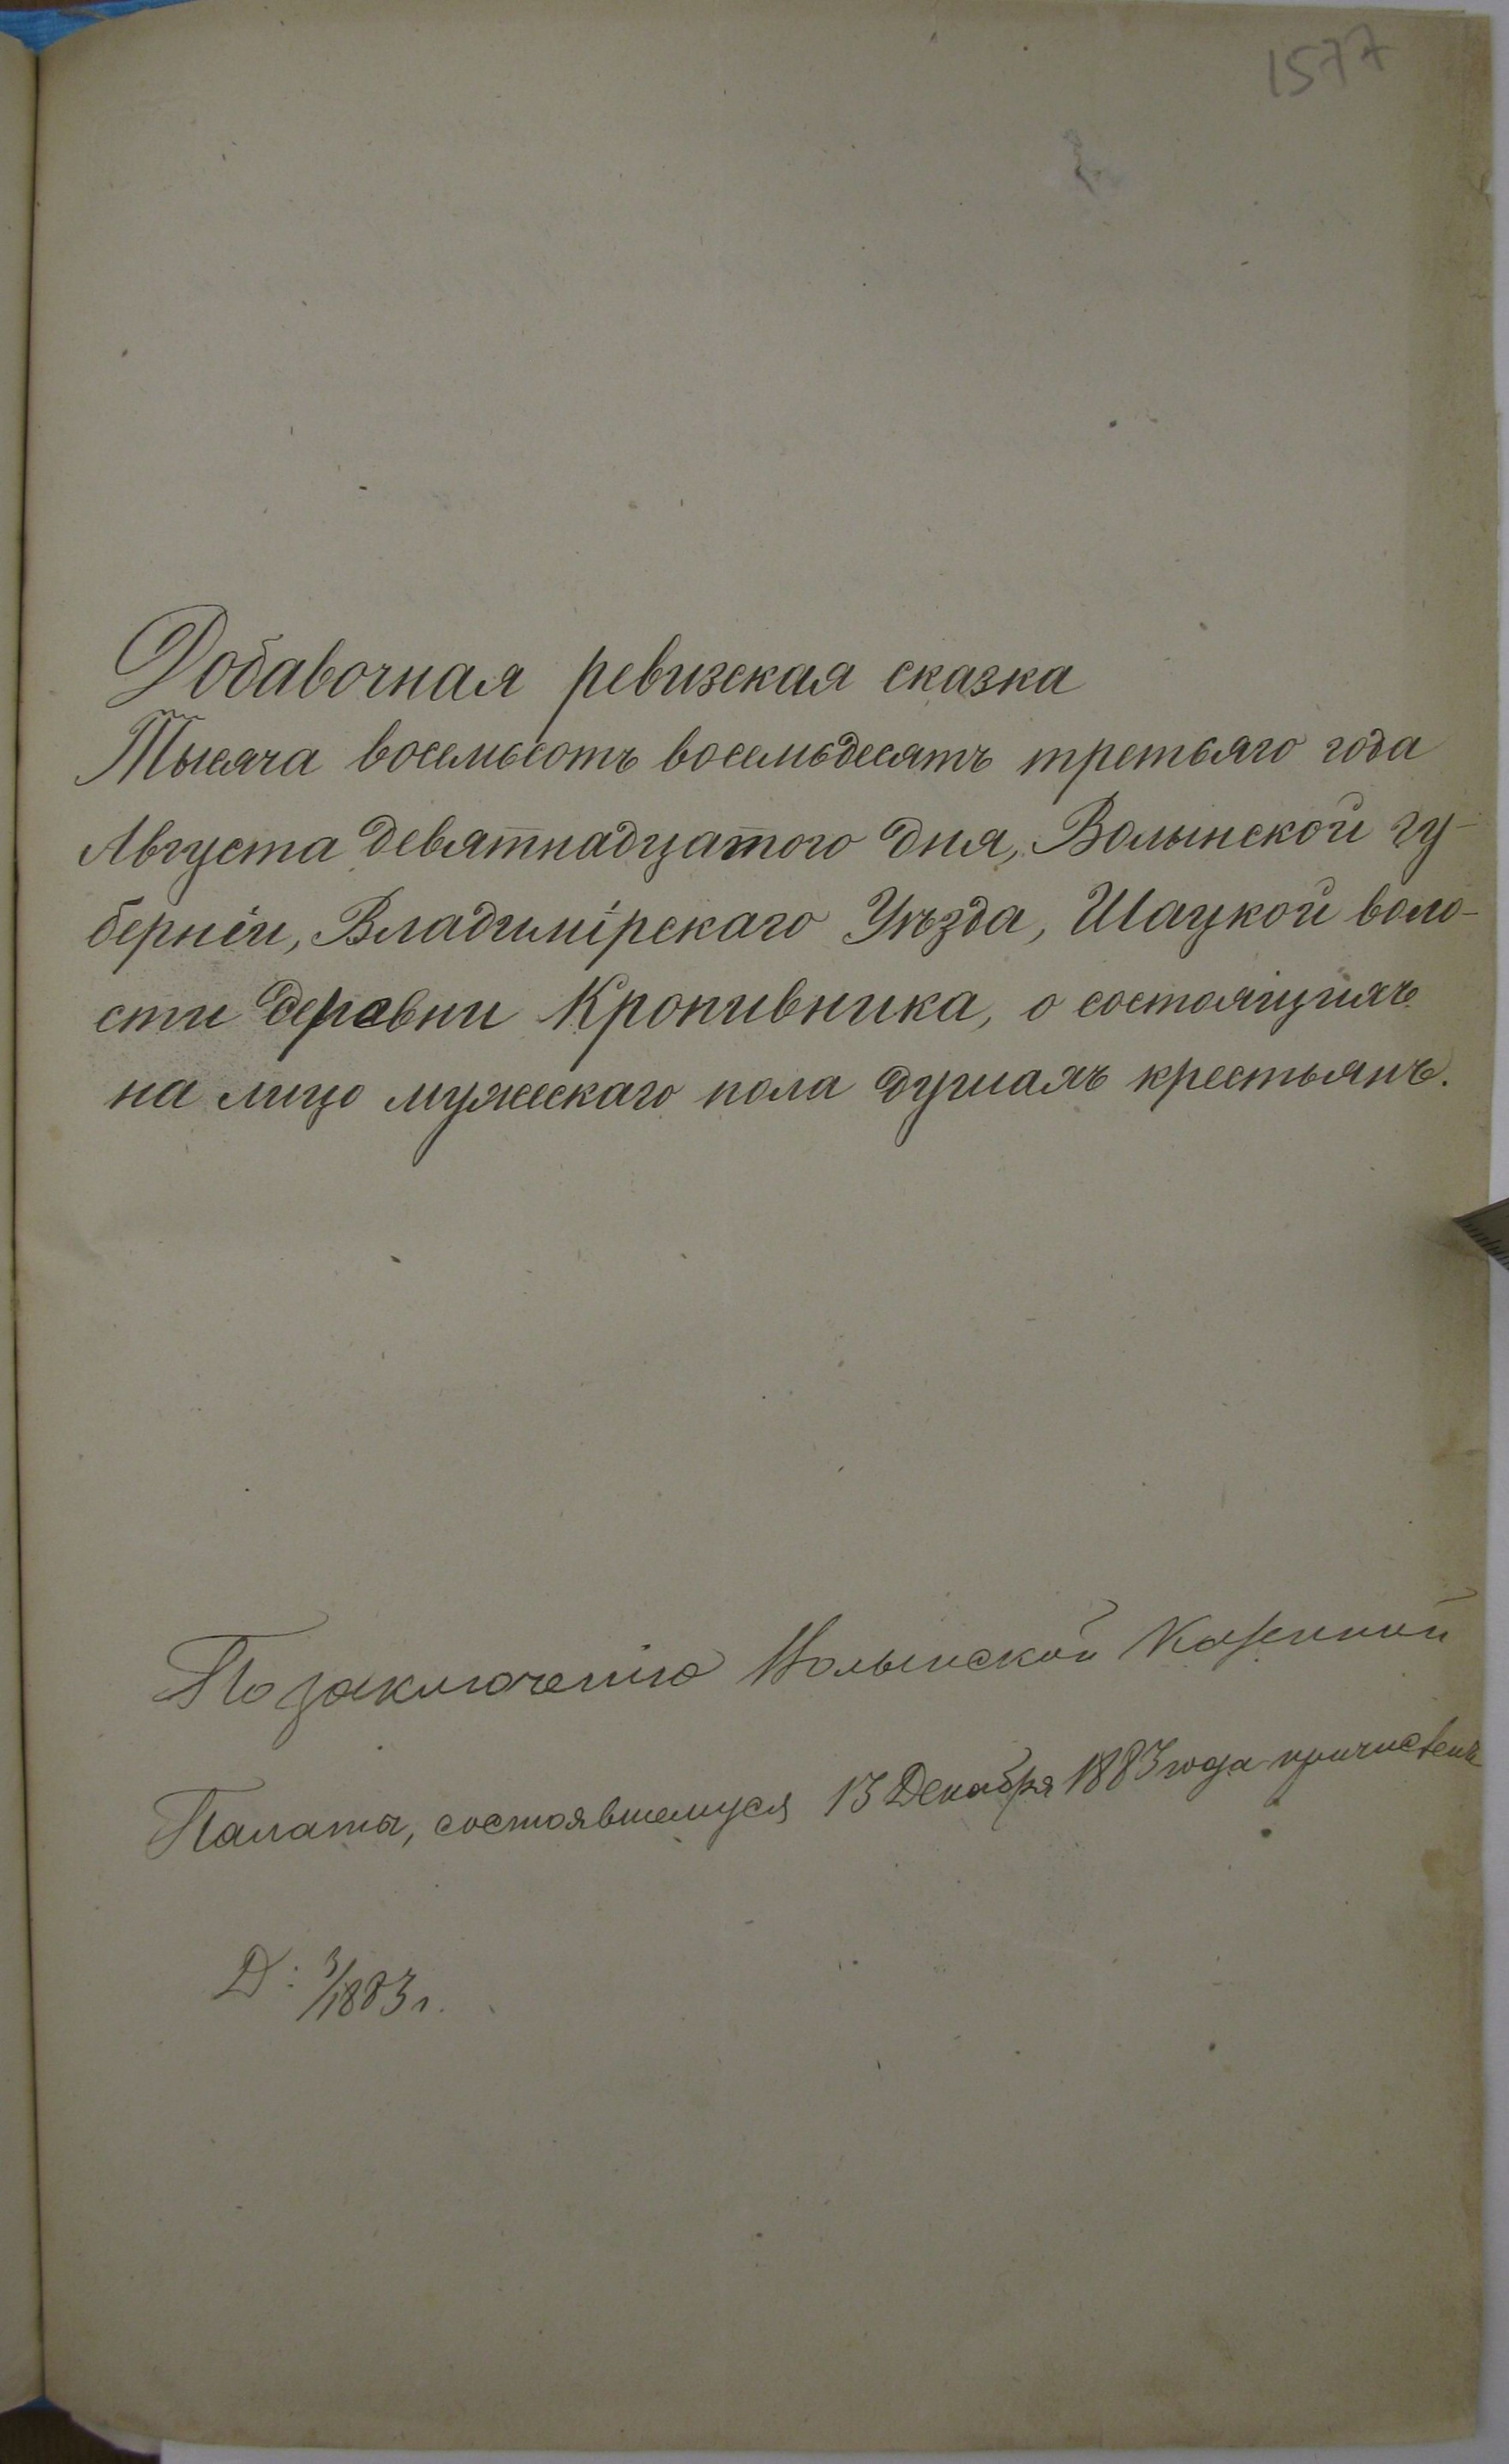 1577
Добавочная ревизская сказка
Тысяча восемьсотъ восемьдесятъ третьяго года
Августа девятнадцатого дня, Волынской гу-
берніи, Владимірскаго Уѣзда, Шацкой воло-
сти деревни Кропивника, о состоящихъ
на лицо мужескаго пола душахъ крестьянъ.
По заключенію Волынской Казенной
Палаты, состоявшемуся 13 Декабря 1883 года причисленъ
Д: 3/1883 г.